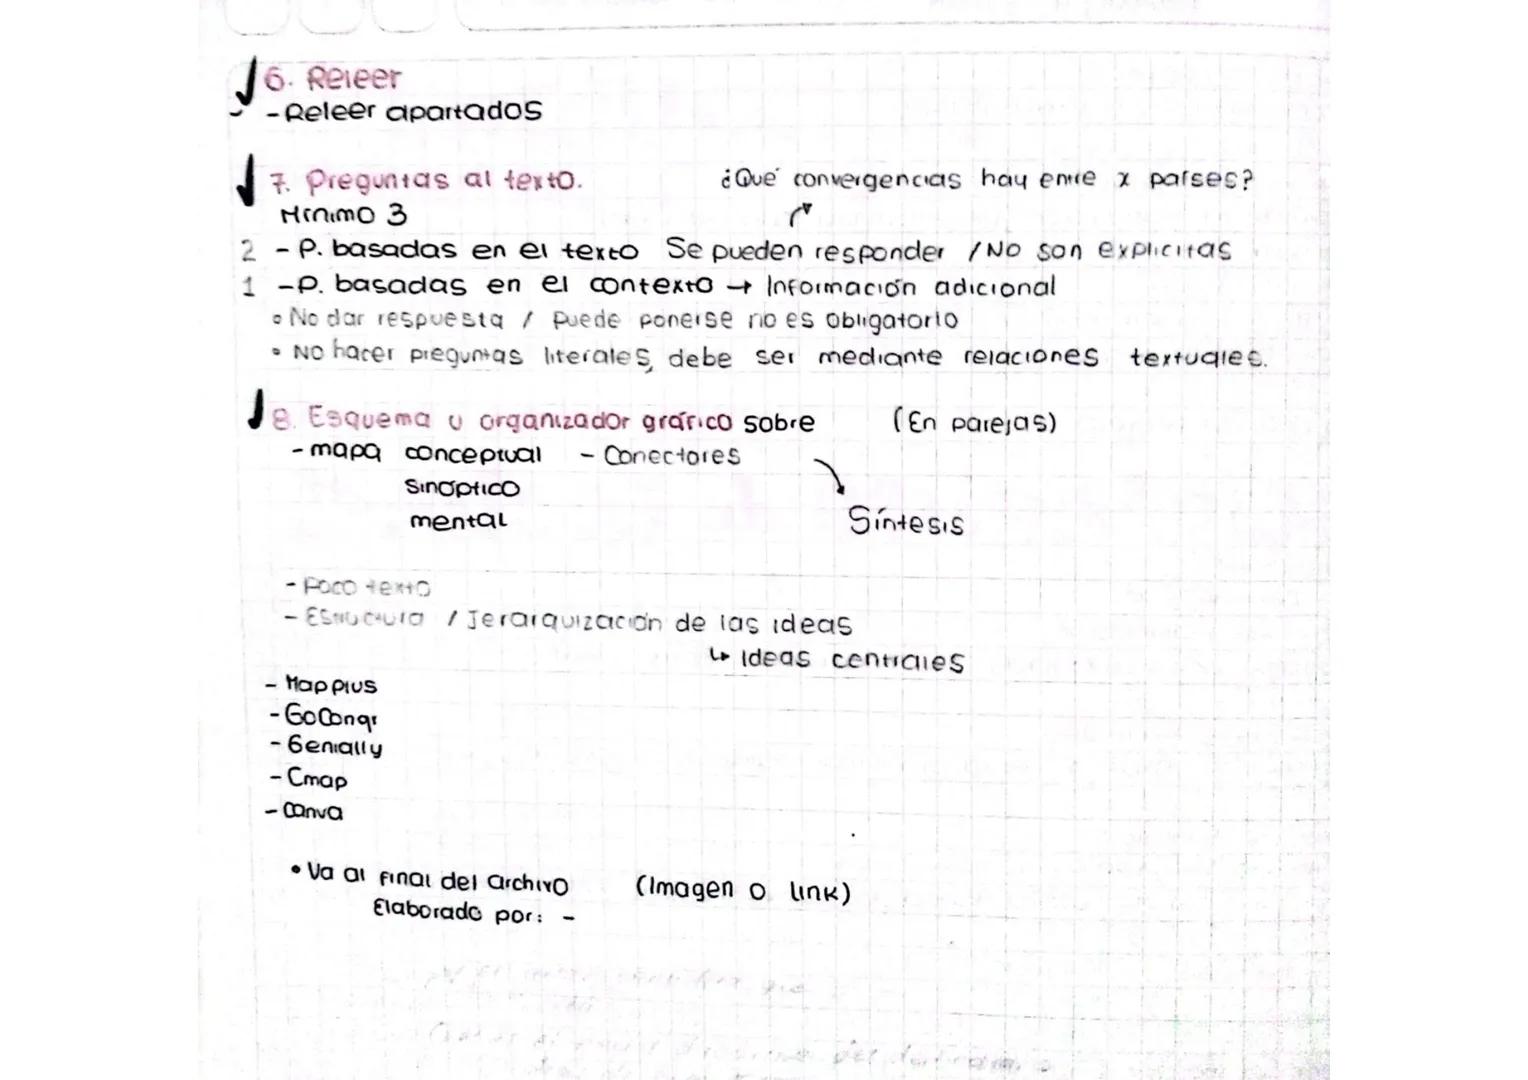 6. Releer
- Releer apartados
7. Preguntas al texto.
¿Qué convergencias hay entre x países?
Mínimo 3
2 - P. basadas en el texto Se pueden responder / No son explícitas
1 - P. basadas en el contexto → Información adicional
• No dar respuesta / Puede ponerse no es obligatorio
• No hacer preguntas literales, debe ser mediante relaciones textuales.
8. Esquema u organizador gráfico sobre (En parejas)
- mapa conceptual - Conectores
sinóptico
mental
Síntesis
- Poco texto
- Estructura / Jerarquización de las ideas
↳ Ideas centrales
- Mapplus
- GoConqr
- Genially
- Cmap
- Canva
• Va al final del archivo (Imagen o link)
Elaborado por: -